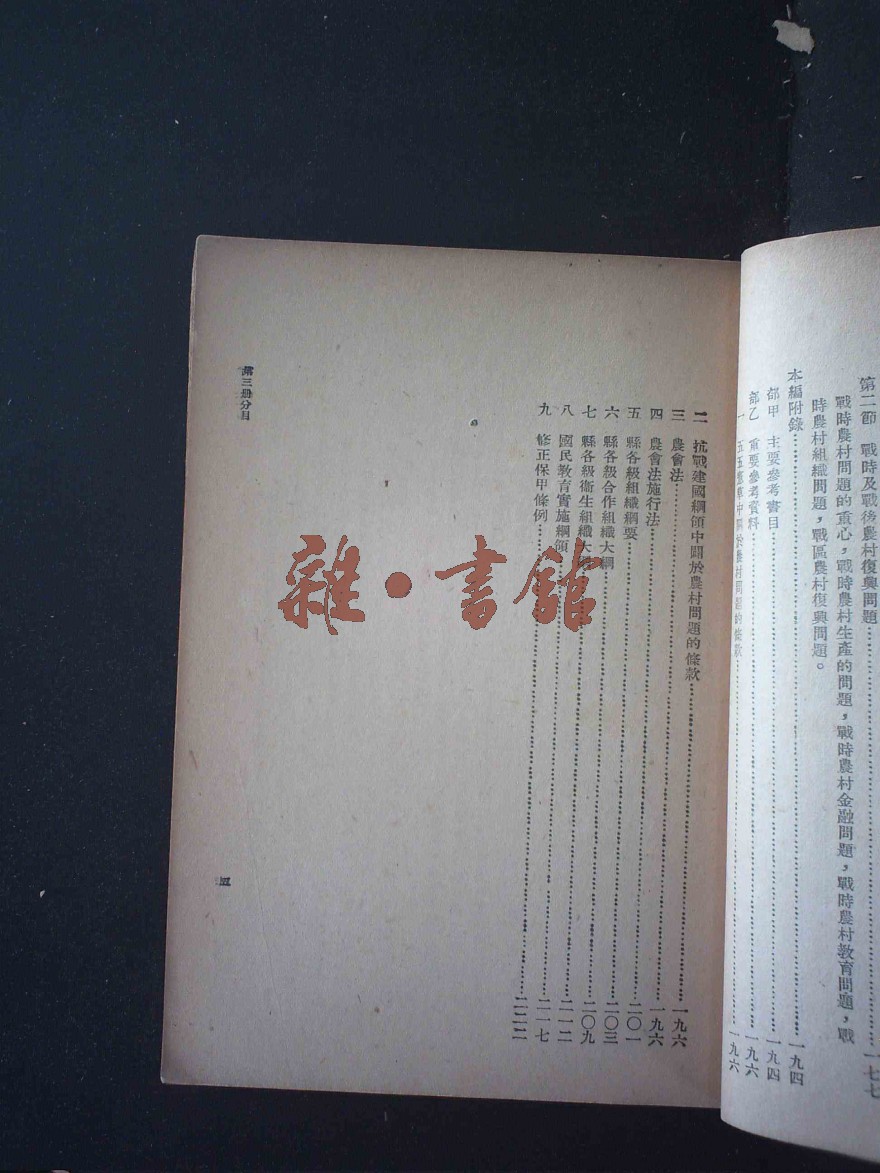 第二節 戰時及戰後農村復興問題……一七七
戰時農村問題的重心，戰時農村生產的問題，戰時農村金融問題，戰時農村教育問題，戰
時農村組織問題，戰區農村復興問題。
本編附錄……一九四
部甲 主要參考書目……一九四
部乙 重要參考資料……一九六
一 五五憲草中關於農村問題的條款……一九六
二 抗戰建國綱領中關於農村問題的條款……一九六
三 農會法……一九六
四 農會法施行法……二〇一
五 縣各級組織綱要……二〇三
六 縣各級合作組織大綱……二〇九
七 縣各級衞生組織大綱……二一二
八 國民教育實施綱領……二一七
九 修正保甲條例……二二二
第三册分目
五
雜·書館